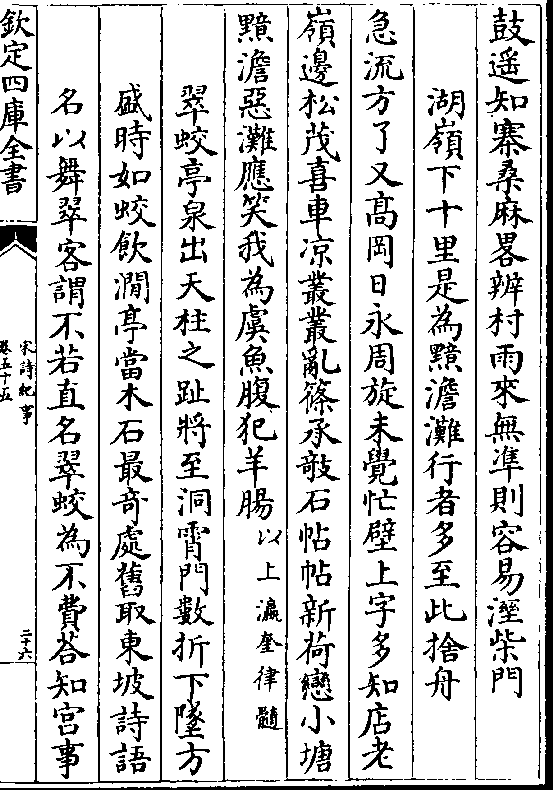 鼓遥知寨桑麻畧辨村雨來無凖則容易溼柴門
湖嶺下十里是為黯澹灘行者多至此捨舟
急流方了又髙岡日永周旋未覺忙壁上字多知店老
嶺邊松茂喜車凉叢叢亂篠承敲石帖帖新荷戀小塘
黯澹惡灘應笑我為虞魚腹犯羊腸以上瀛奎律髓
翠蛟亭泉出天柱之趾將至洞霄門數折下墜方
盛時如蛟飲澗亭當木石最竒處舊取東坡詩語
名以舞翠客謂不若直名翠蛟為不費荅知宫事
欽定四庫全書
宋詩紀事
卷五十五
二十六